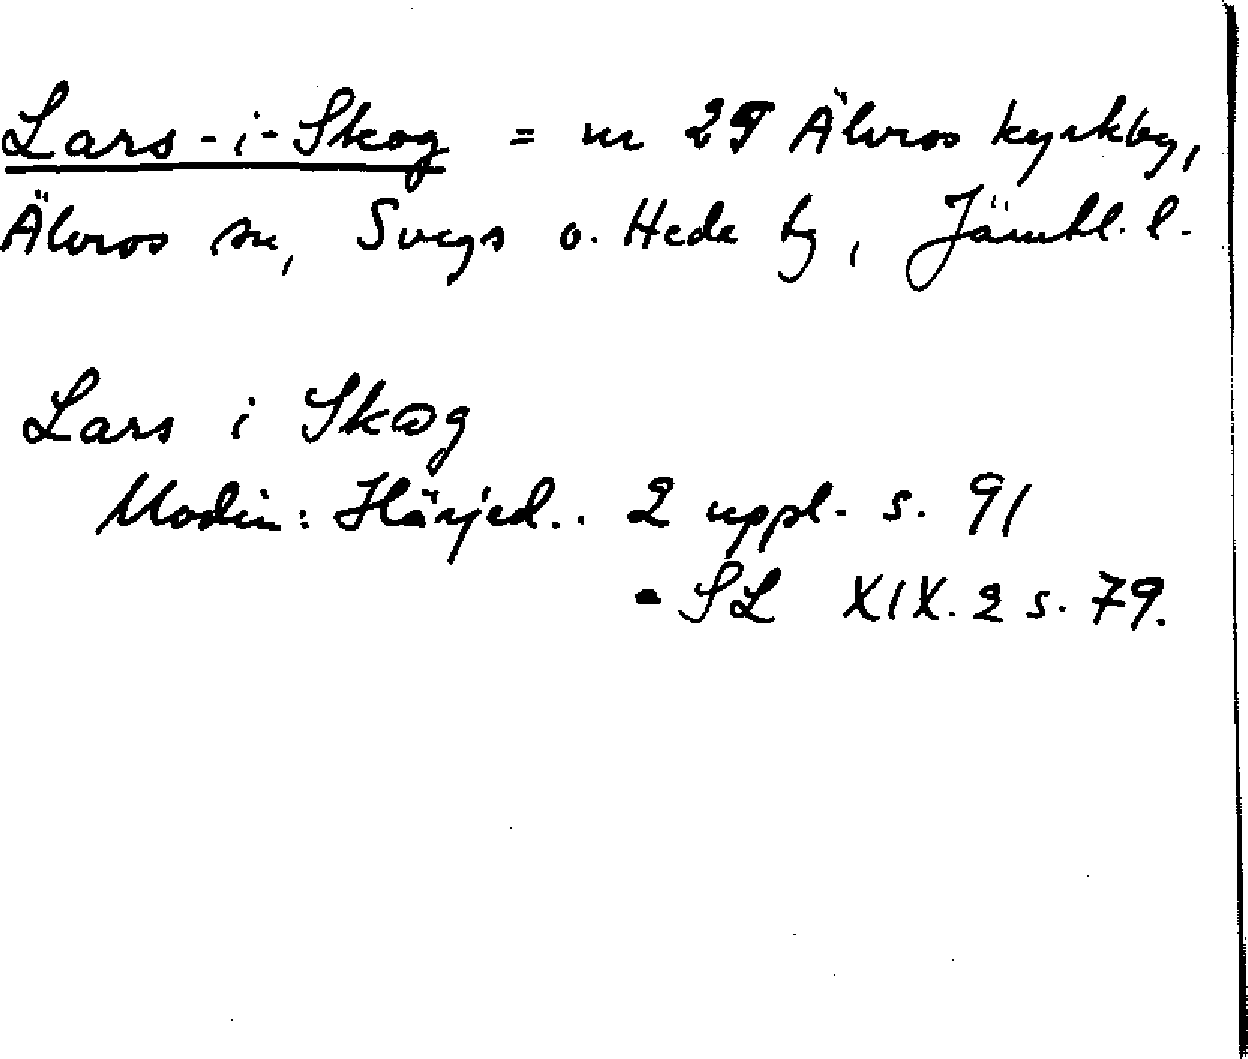 Lars-i-Skog = nr 29 Älvros kyrkby,
Älvros sn, Svegs o. Hede tg, Jämtl. l.
Lars i Skog
Modin: Härjed.. 2 uppl. s. 91
= SL XIX. 2 s. 79.